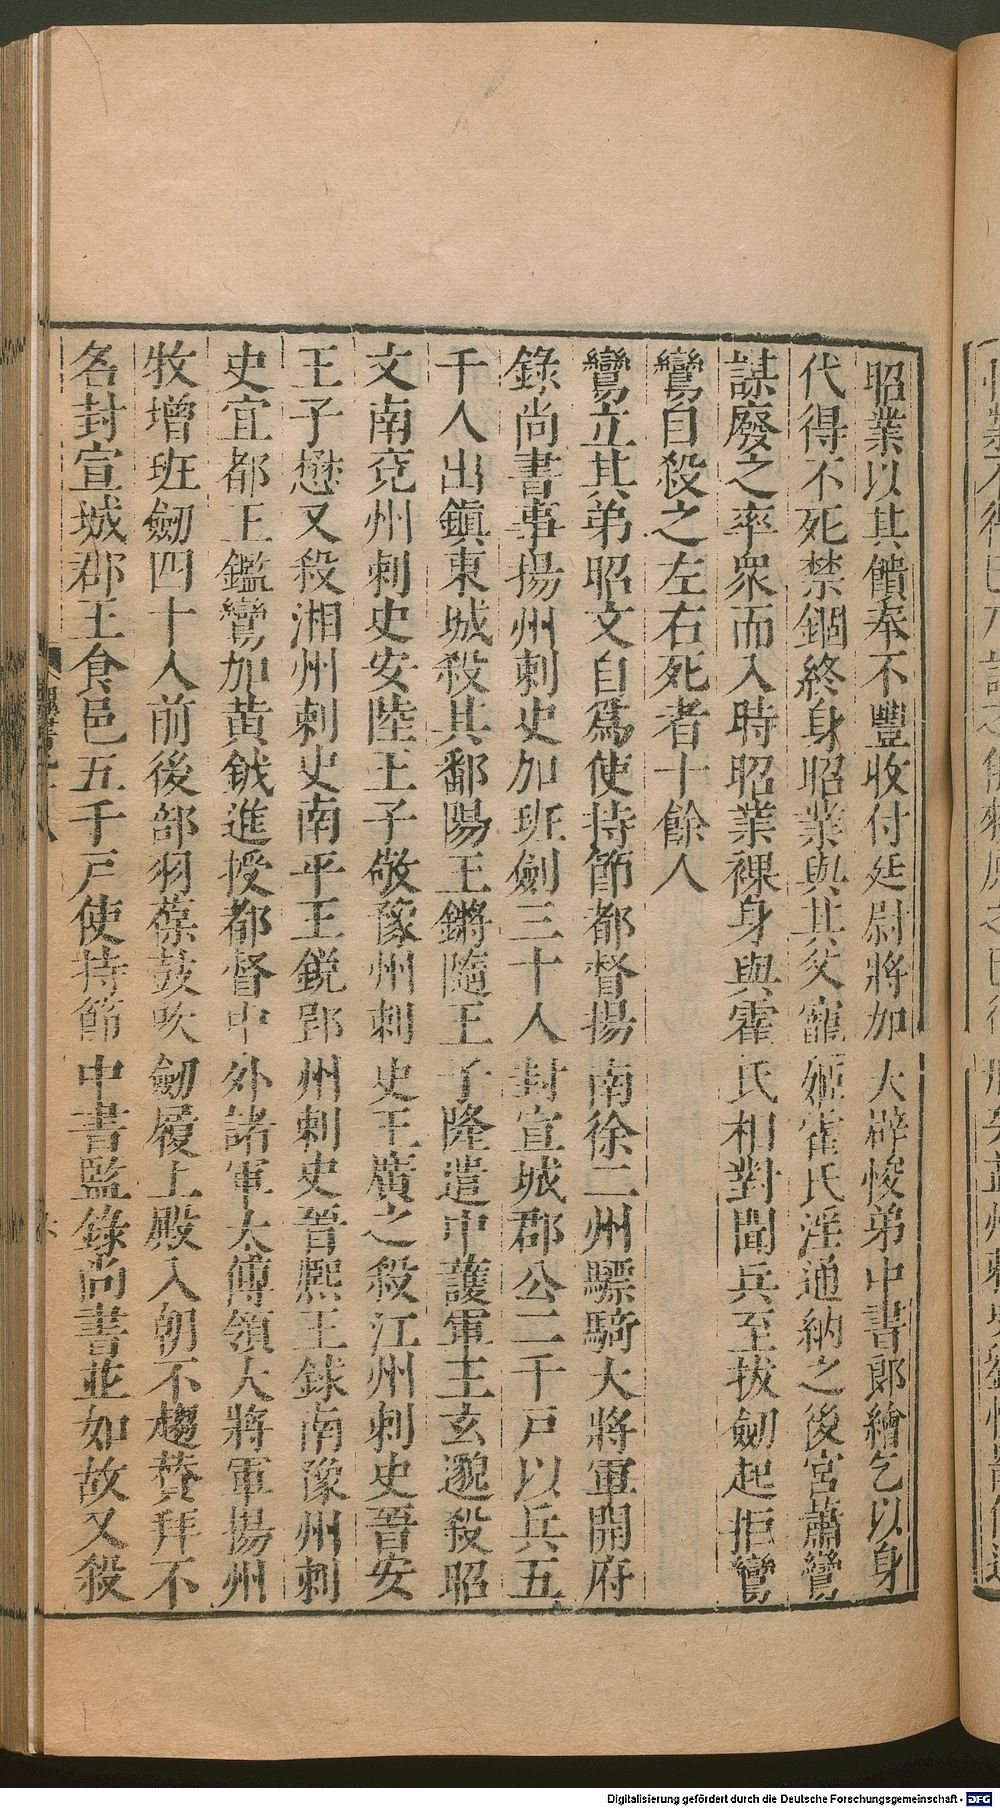 昭業以其饋奉不豐收付廷尉將加大辟悛弟中書郎繪乞以身
代得不死禁錮終身昭業與其父寵姬霍氏淫通納之後宮蕭鸞
謀廢之率衆而入時昭業裸身與霍氏相對聞兵至拔劒起拒鸞
鸞自殺之左右死者十餘人
鸞立其弟昭文自爲使持節都督揚南徐二州驃騎大將軍開府
錄尚書事揚州刺史加班劒三十人封宣城郡公二千戶以兵五
千人出鎭東城殺其鄱陽王鏘隨王子隆遣中護軍王玄邈殺昭
文南兗州刺史安陸王子敬豫州刺史王廣之殺江州刺史晉安
王子懋又殺湘州刺史南平王銳郢州刺史晉熙王銶南豫州刺
史宜都王鑑鸞加黃鉞進授都督中外諸軍太傅領大將軍揚州
牧增班劒四十人前後部羽葆鼓吹劒履上殿入朝不趨贊拜不
名封宣城郡王食邑五千戶使持節中書監錄尚書並如故又殺
Digitalisierung gefördert durch die Deutsche Forschungsgemeinschaft - DFG